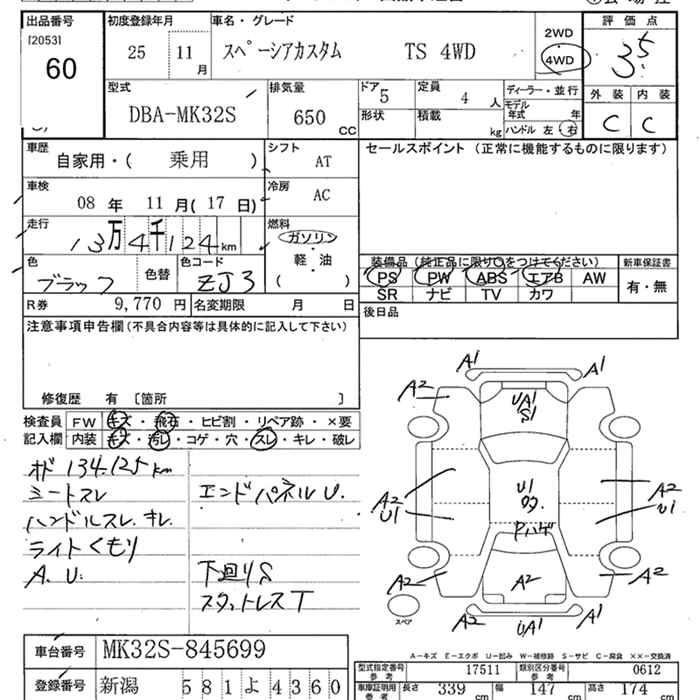 出品番号
[2053]
60
初度登録年月
25 11 月
車名・グレード
スペーシアカスタム TS 4WD
2WD
4WD
評価点
3.5
外装 内装
C C
型式
DBA-MK32S
排気量
650 CC
ドア 5
定員 4 人
形状
積載 kg
ディーラー・並行
モデル年式 年
ハンドル 左・右
車歴
自家用・( 乗用 )
シフト AT
車検
08 年 11 月( 17 日)
冷房 AC
走行
13万4千124km
燃料
ガソリン
軽・油
( )
色
ブラック
色替
色コード
ZJ3
R券 9,770 円
名変期限 月 日
セールスポイント(正常に機能するものに限ります)
装備品(純正品に限り○をつけてください)
PS PW ABS エアB AW
SR ナビ TV カワ
新車保証書
有・無
後日品
注意事項申告欄(不具合内容等は具体的に記入して下さい)
修復歴 有 [箇所 ]
検査員
記入欄
FW キズ・飛石・ヒビ割・リペア跡・×要
内装 キズ・汚レ・コゲ・穴・スレ・キレ・破レ
オド 134.125km
シートスレ
ハンドルスレ.キレ.
ライトくもり
A.U.
エンドパネルU.
下回りS
スタットレスT
A1 A1
A2 A2
UA1
S1
A2
U1
U1
Pハゲ
A2
U1
A2
A2
A2
A1
UA1
A1
スペア
A-キズ E-エクボ U-凹み W-補修跡 S-サビ C-腐食 ××-交換済
車台番号 MK32S-845699
登録番号 新潟 581よ4360
型式指定番号 参考 17511
類別区分番号 参考 0612
車庫証明用 参考
長さ 339 cm
幅 147 cm
高さ 174 cm